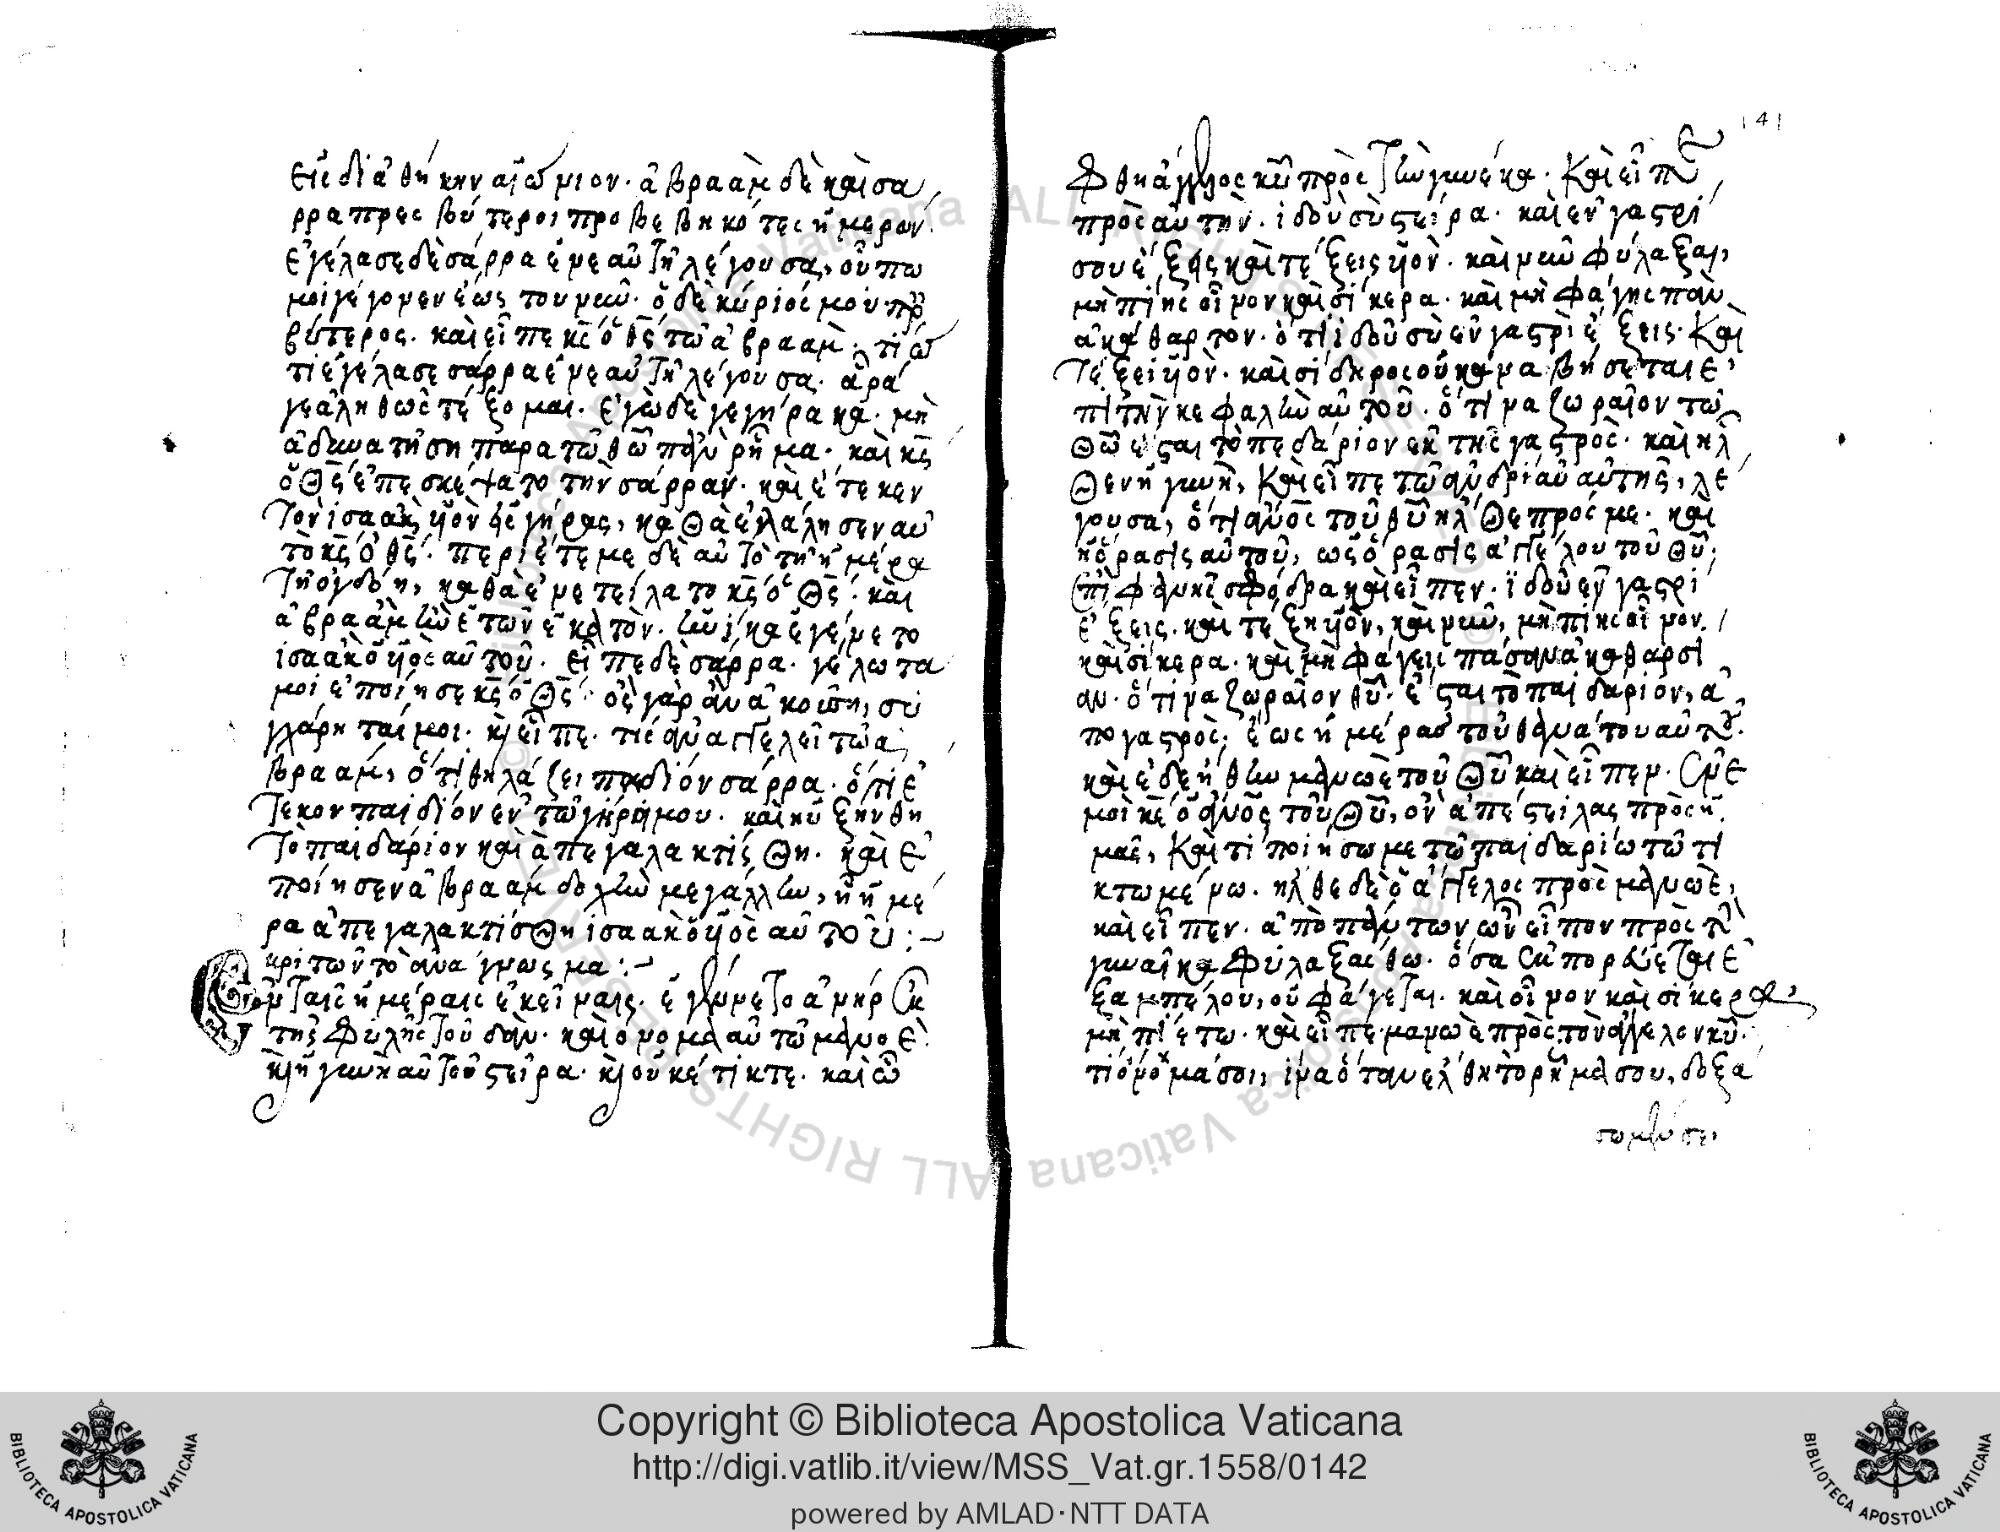 εἰς διαθήκην αἰώνιον· ἀβραὰμ δὲ καὶ σα
ρρα πρεσβύτεροι προβεβηκότες ἡμερῶν·
ἐγέλασε δὲ σάρρα ἐν ἑαυτῇ λέγουσα, οὔπω
μοι γέγονεν ἕως του νῦν· ὁ δὲ κύριός μου πρε
βύτερος· καὶ εἶπε κς ὁ θς τῶ ἀβραὰμ· τί ὅ
τι ἐγέλασε σάρρα ἐν ἑαυτῇ λέγουσα· ἆρά
γε ἀληθῶς τέξομαι· ἐγὼ δὲ γεγήρακα· μὴ
ἀδυνατήση παρα τῶ θῶ πᾶν ρῆμα· καὶ κς
ὁ θς ἐπεσκέψατο τὴν σάρραν· καὶ ἔτεκεν
τὸν ἰσαὰκ υἱὸν εἰς γῆρας, καθὰ ἐλάλησεν αὐ
τὸ κς ὁ θς· περιέτεμε δὲ αὐτὸ τῇ ἡμέρα
τῇ ὀγδόη, καθὰ ἐνετείλατο κς ὁ θς· καὶ
ἀβραὰμ ἦν ἐτῶν ἑκατὸν· ἡνίκα ἐγένετο
ἰσαὰκ ὁ υἱὸς αὐτοῦ· εἶπε δὲ σάρρα· γέλωτα
μοι ἐποίησε κς ὁ θς· ὃς γὰρ ἂν ἀκούση, συ
γχάρηταί μοι· κ εἶπε· τίς ἀναγγελεῖ τῶ ἀ
βραάμ, ὅτι θηλάζει παιδίον σάρρα· ὅτι ἔ
τεκον παιδίον ἐν τῶ γήρα μου· καὶ ηὐξήνθη
τὸ παιδάριον καὶ ἀπεγαλακτίσθη· καὶ ἐ
ποίησεν ἀβραάμ δοχὴν μεγάλην, ἧ ἡμέ
ρα ἀπεγαλακτίσθη ἰσαὰκ ὁ υἱὸς αὐτοῦ:~
κριτῶν τὸ ἀνάγνωσμα:~
Εν ταῖς ἡμέραις ἐκείναις· ἐγένετο ἀνὴρ ἐκ
τῆς φυλῆς τοῦ δὰν· καὶ ονομα αὐτῶ μανοὲ·
κ ἡ γυνὴ αὐτοῦ στείρα· κ οὐκ ἔτικτε· καὶ ὤ
141
φθη ἄγγελος κυ πρὸς τὴν γυνέκα· Καὶ εἶπε
πρὸς αὐτὴν· ἰδοὺ σὺ στείρα· καὶ ἐν γαστρί
σου ἕξης καὶ τέξεις υἱὸν· καὶ νῦν φύλαξαι,
μὴ πίης οἶνον καὶ σίκερα· καὶ μὴ φάγης πᾶν
ἀκάθαρτον· ὅτι ἰδοὺ σὺ ἐν γαστρὶ ἕξεις· Καὶ
τέξει υἱὸν· καὶ σίδηρος οὐκ ἀναβήσεται ἐ
πὶ τὴν κεφαλὴν αὐτοῦ· ὅτι ναζωραῖον τῶ
θῶ ἔσται τὸ πεδάριον ἐκ τῆς γαστρὸς· καὶ ηλ
θεν ἡ γυνὴ, Καὶ εἶπε τῶ ἀνδρὶ αὐτῆς, λέ
γουσα, ὅτι ἀνος τοῦ θυ ηλθε πρός με· καὶ
ἡ ὅρασις αὐτοῦ, ως ὅρασις ἀγγέλου τοῦ θυ·
ἐπιφανὴς σφόδρα καὶ εἶπεν· ἰδοὺ ἐν γαστρί
ἕξεις· καὶ τέξη υἱὸν, καὶ νῦν, μὴ πίης οἶνον·
καὶ σίκερα· καὶ μὴ φάγεις πάσαν ἀκαθαρσί
αν· ὅτι ναζωραῖον θυ· ἔσται τὸ παιδάριον, ἀ
πο γαστρὸς· ἕως ἡμέρας τοῦ θανάτου αὐτοῦ·
καὶ ἐδεήθη μανωὲ τοῦ θυ καὶ εἶπεν· ἐν ἐ
μοὶ κε ὁ ἀνος τοῦ θυ, ὃν ἀπέστειλας πρὸς ἡ
μᾶς, Καὶ τί ποιήσωμε τῶ παιδαρίω τῶ τι
κτωμένω· ηλθε δὲ ὁ ἄγγελος πρὸς μανωὲ,
καὶ εἶπεν· ἀπὸ πάντων ὧν εἶπον πρὸς τὴν
γυναῖκα φυλαξάσθω· ὅσα ἐκπορεύεται ἐ
ξ αμπέλου, οὐ φάγεται· καὶ οἶνον καὶ σίκερα
μὴ πιέτω· καὶ εἶπε μανωὲ πρὸς τὸν ἄγγελον κυ·
τί όνομά σοι, ἵνα ὅταν ελθη τὸ ρῆμα σου, δοξά
σωμέν σε,
Copyright © Biblioteca Apostolica Vaticana
http://digi.vatlib.it/view/MSS_Vat.gr.1558/0142
powered by AMLAD·NTT DATA
BIBLIOTECA APOSTOLICA VATICANA
BIBLIOTECA APOSTOLICA VATICANA